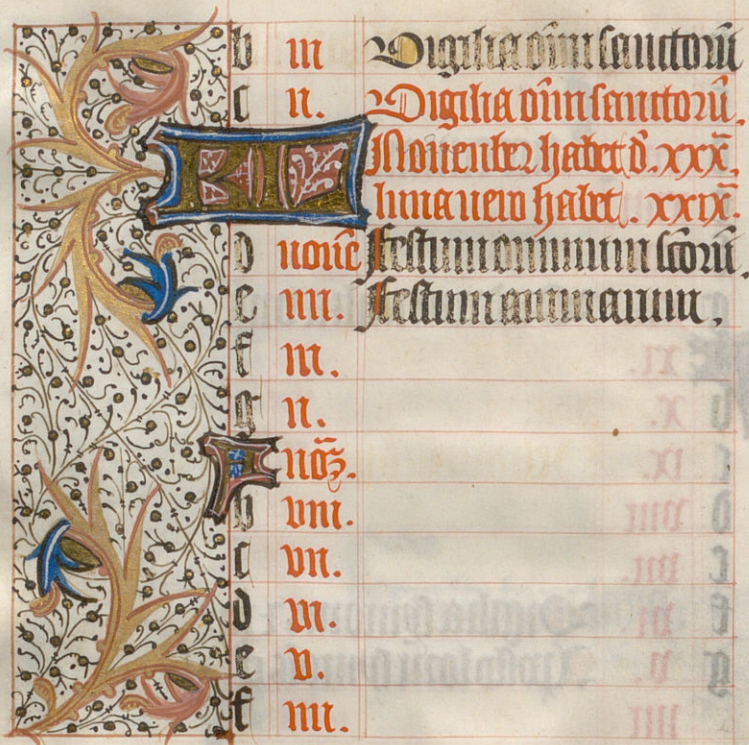 b iii Vigilia oīm sanctorū
c ii. Vigilia oīm sanctorū.
KL Nouenber habet d. xxx.
luna uero habet. xxix.
d nonē Festum omnium scorū
e iiii. Festum animarum,
f iii.
g ii.
A noȝ.
b viii.
c vii.
d vi.
e v.
f iiii.